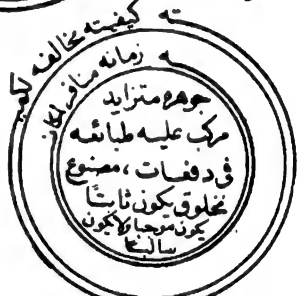 ته كيفيته مخالفه لكميـ
ـه زمانه منافر لمكانـ
جوهره متزايد
مركب عليه طبائعه
في دفعات، مصنوع
مخلوق يكون ثابتًا
يكون موجبا ولا يكون
سالبًا